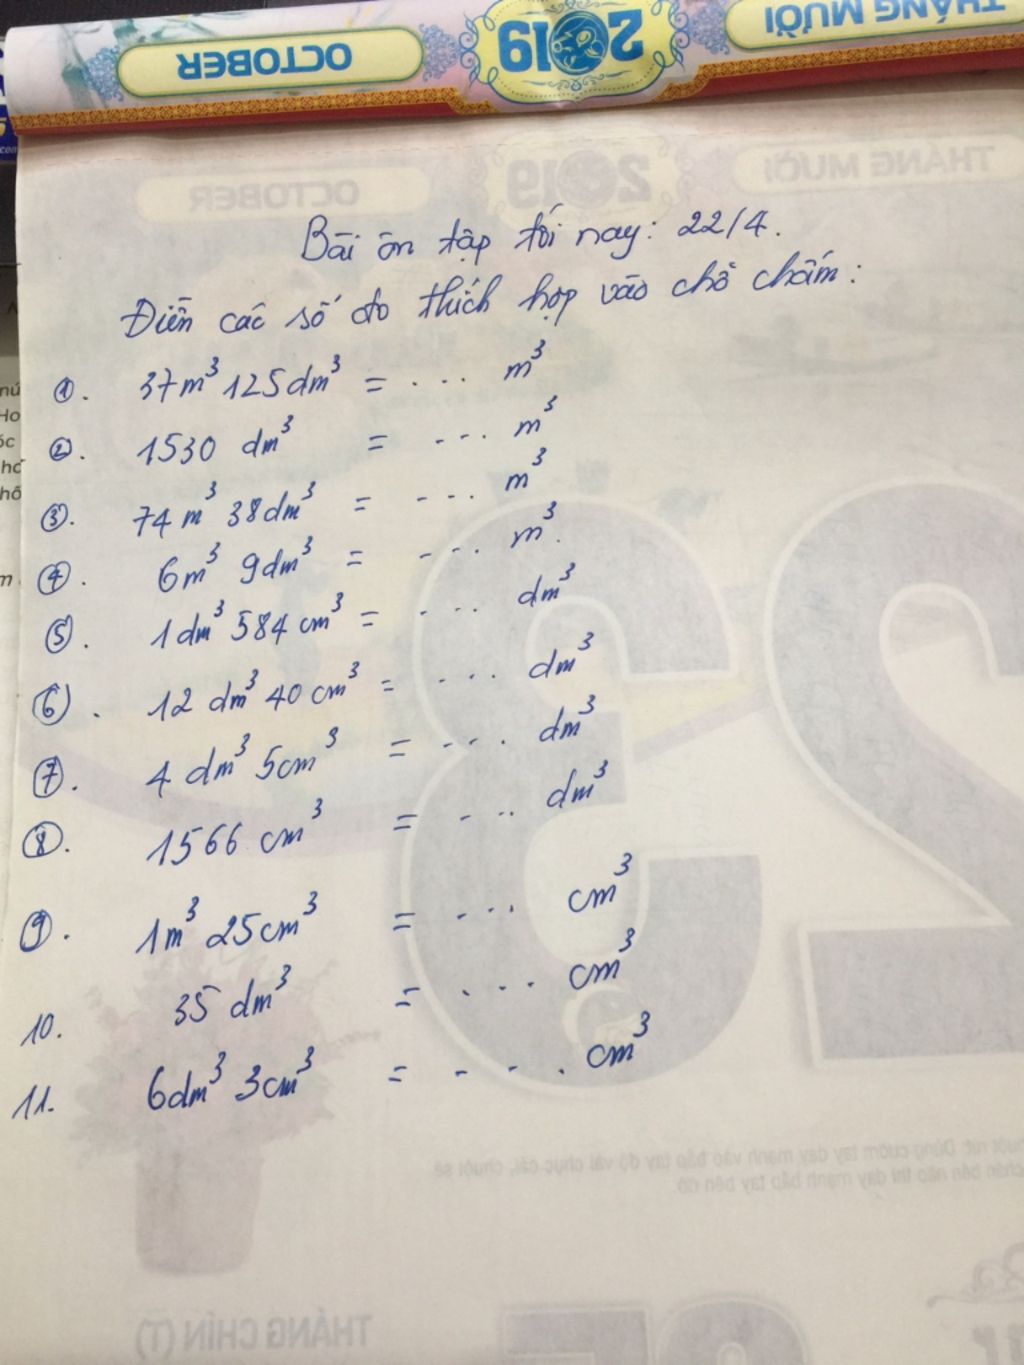 OCTOBER
2019
THÁNG MƯỜI
OCTOBER
2019
THÁNG MƯỜI
Bài ôn tập tối nay: 22/4.
Điền các số đo thích hợp vào chỗ chấm:
①. 37m³ 125dm³ = ... m³
②. 1530 dm³ = ... m³
③. 74 m³ 38dm³ = ... m³
④. 6m³ 9dm³ = ... m³.
⑤. 1dm³ 584 cm³ = ... dm³
⑥. 12 dm³ 40 cm³ = ... dm³
⑦. 4 dm³ 5cm³ = ... dm³
⑧. 1566 cm³ = ... dm³
⑨. 1m³ 25cm³ = ... cm³
10. 35 dm³ = ... cm³
11. 6dm³ 3cm³ = ... cm³
23
THÁNG CHÍN (T)